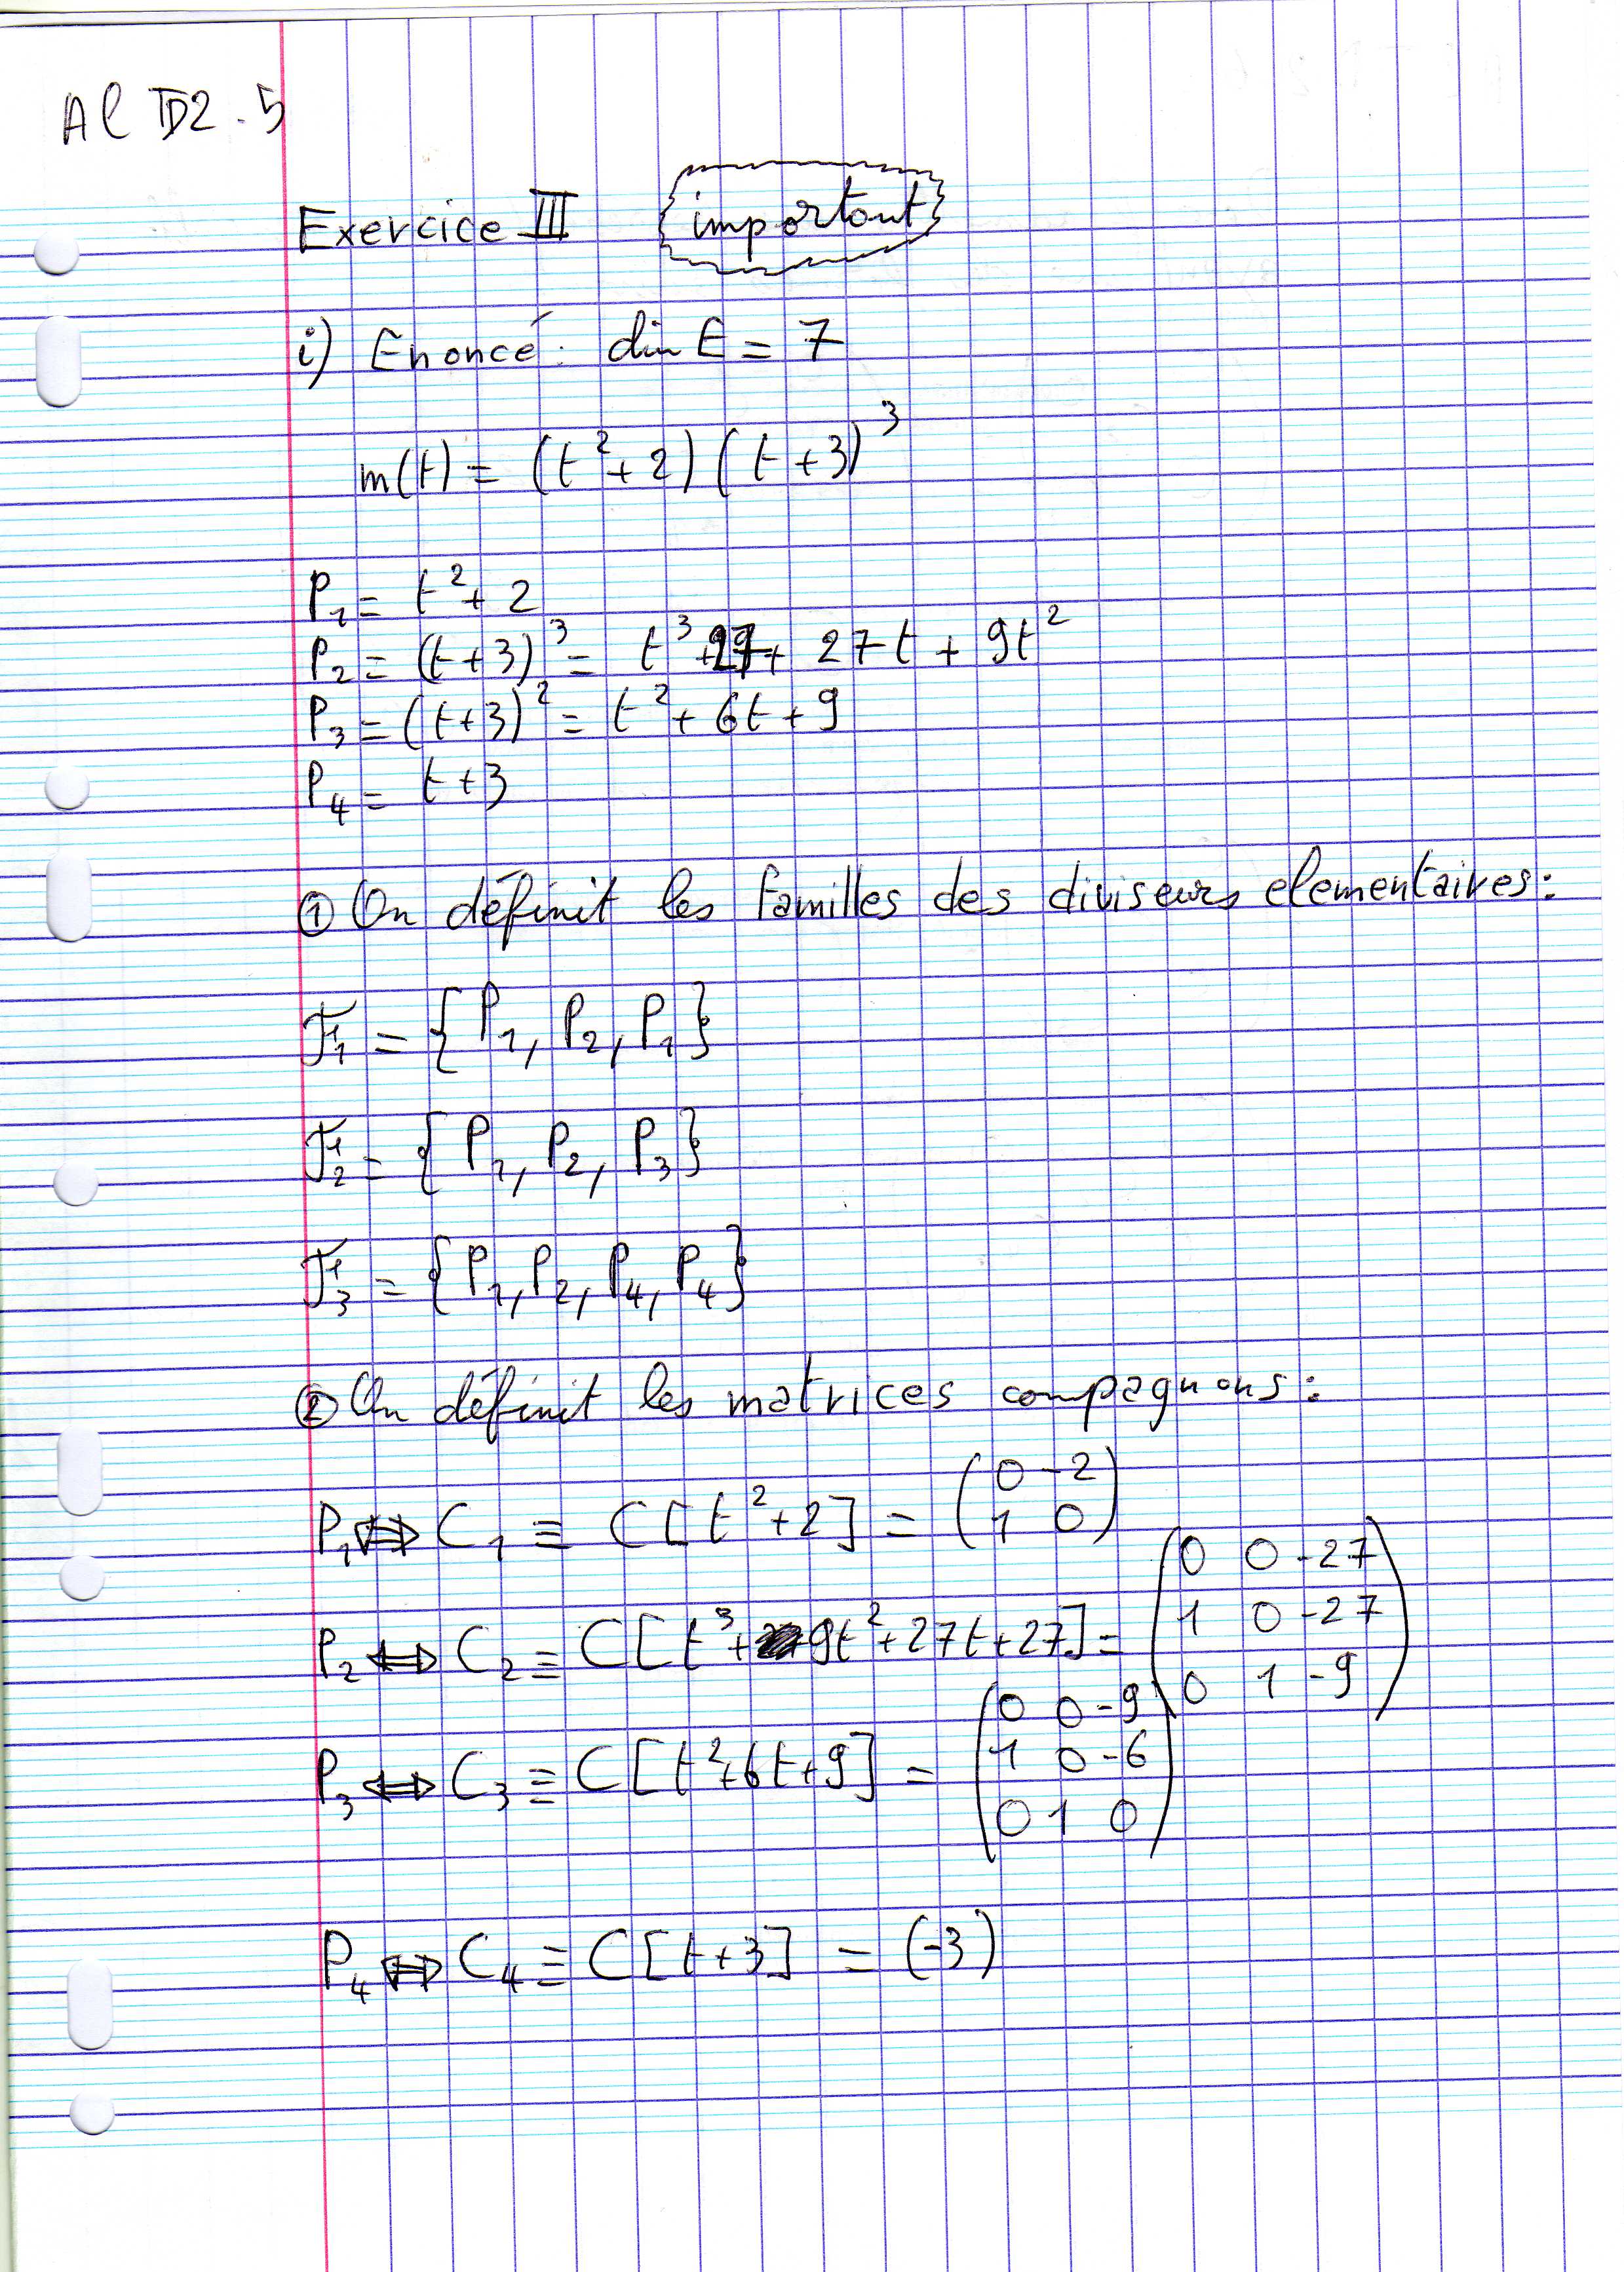 Al TD2.5
Exercice III important
i) Enoncé: dim E = 7
m(t) = (t²+2)(t+3)³
P₁ = t²+2
P₂ = (t+3)³ = t³+27+27t+9t²
P₃ = (t+3)² = t²+6t+9
P₄ = t+3
① On définit les familles des diviseurs elementaires:
F₁ = {P₁, P₂, P₁}
F₂ = {P₁, P₂, P₃}
F₃ = {P₁, P₂, P₄, P₄}
② On définit les matrices compagnons:
P₁ ⟺ C₁ ≡ C[t²+2] = (0 -2
1 0)
P₂ ⟺ C₂ ≡ C[t³+9t²+27t+27] = (0 0 -27
1 0 -27
0 1 -9)
P₃ ⟺ C₃ ≡ C[t²+6t+9] = (0 0 -9
1 0 -6
0 1 0)
P₄ ⟺ C₄ ≡ C[t+3] = (-3)